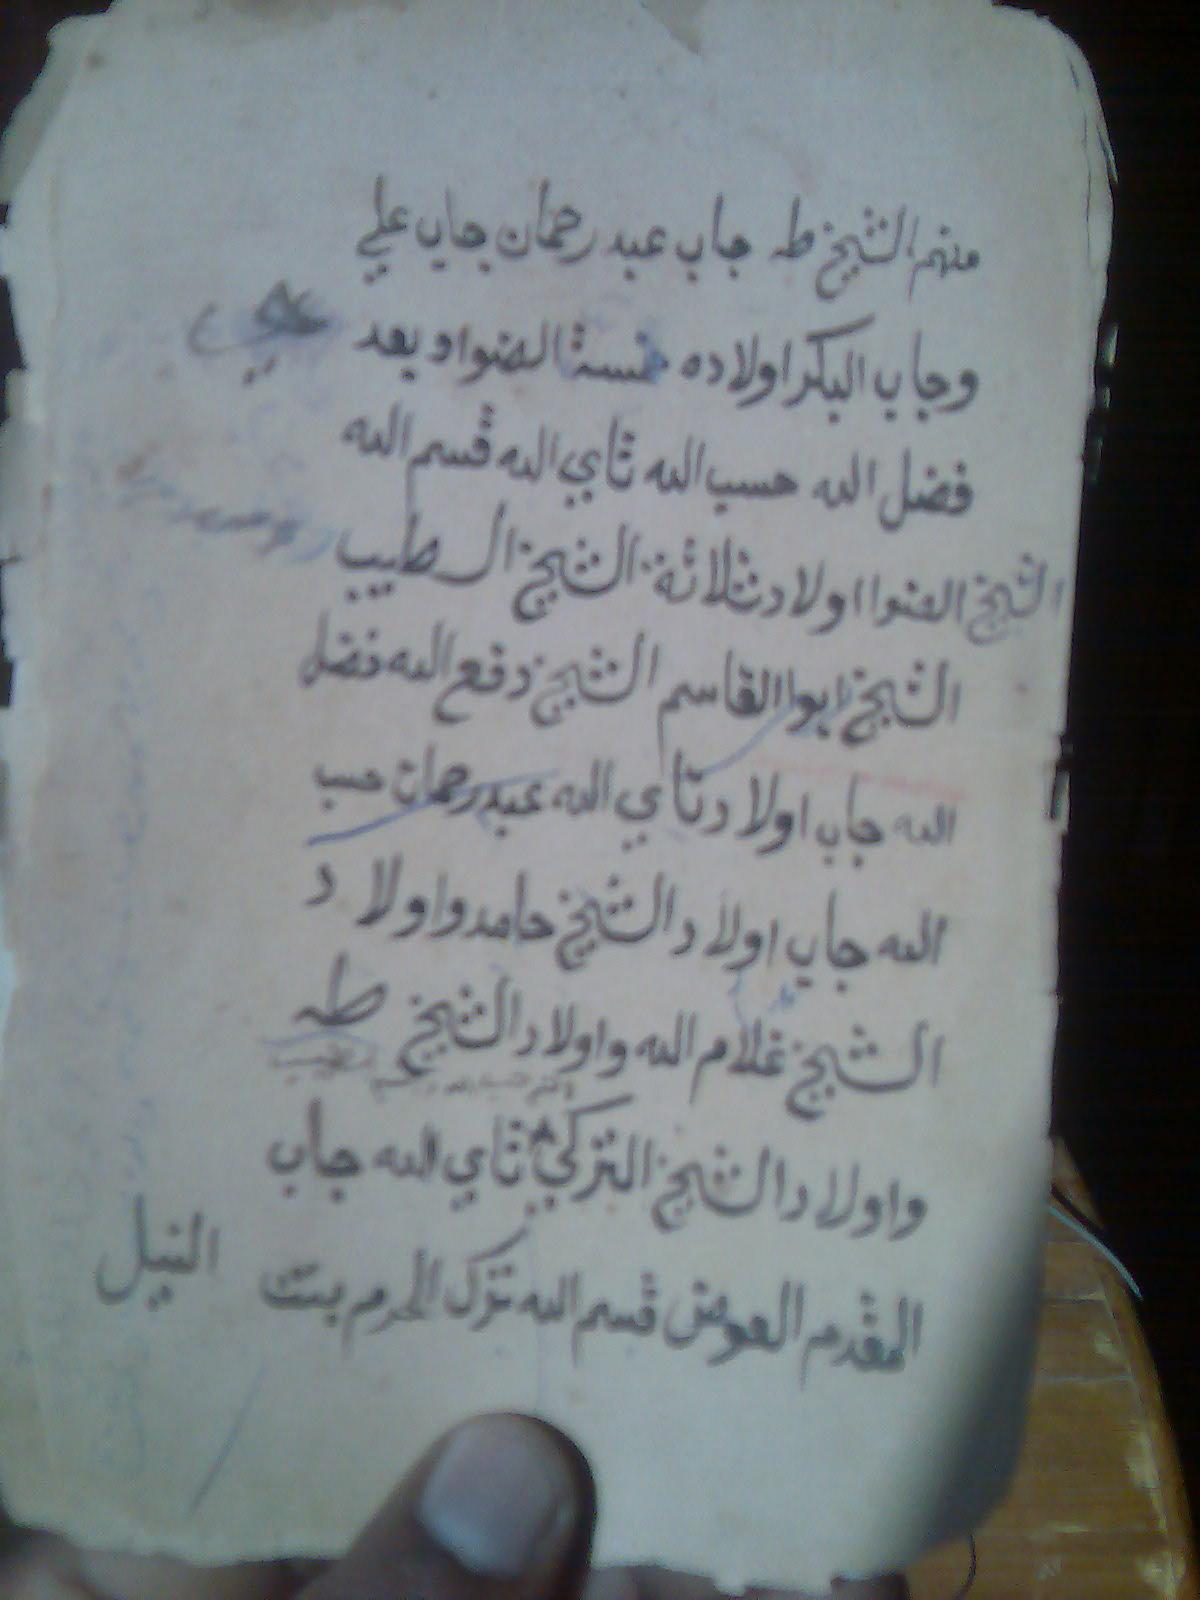 منهم الشيخ طه جاب عبد رحمان جاب علي
وجاب البكر اولاده خمسة الضو اوبعد
فضل الله حسب الله تاي الله قسم الله
الشيخ الضوا اولاد ثلاثة الشيخ الطيب
الشيخ ابوا القاسم الشيخ دفع الله فضل
الله جاب اولاد تاي الله عبد رحمان حسب
الله جاب اولاد الشيخ حامد واولاد
الشيخ غلام الله واولاد الشيخ طه
واولاد الشيخ التركي تاي الله جاب
المقدم العوض قسم الله ترك الحرم بنت
النيل